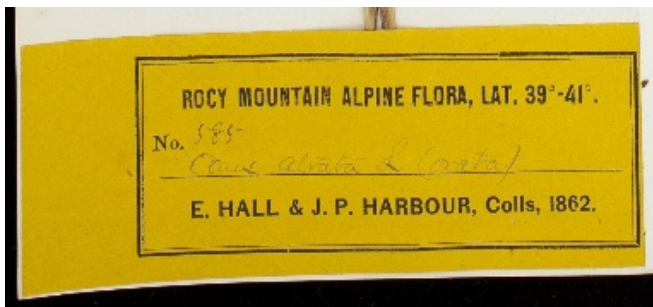 ROCY MOUNTAIN ALPINE FLORA, LAT. 39°-41°.
No. 585
Carex atrata L (ovata)
E. HALL & J. P. HARBOUR, Colls, 1862.